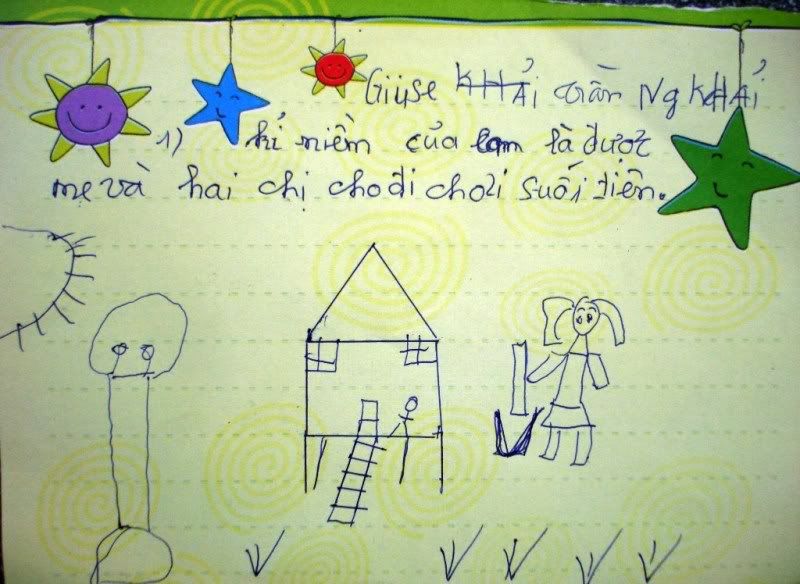 Giuse KHẢi trần Ng KHẢi
1) kỉ niềm của em là được
mẹ và hai chị cho đi chơi suối tiện.